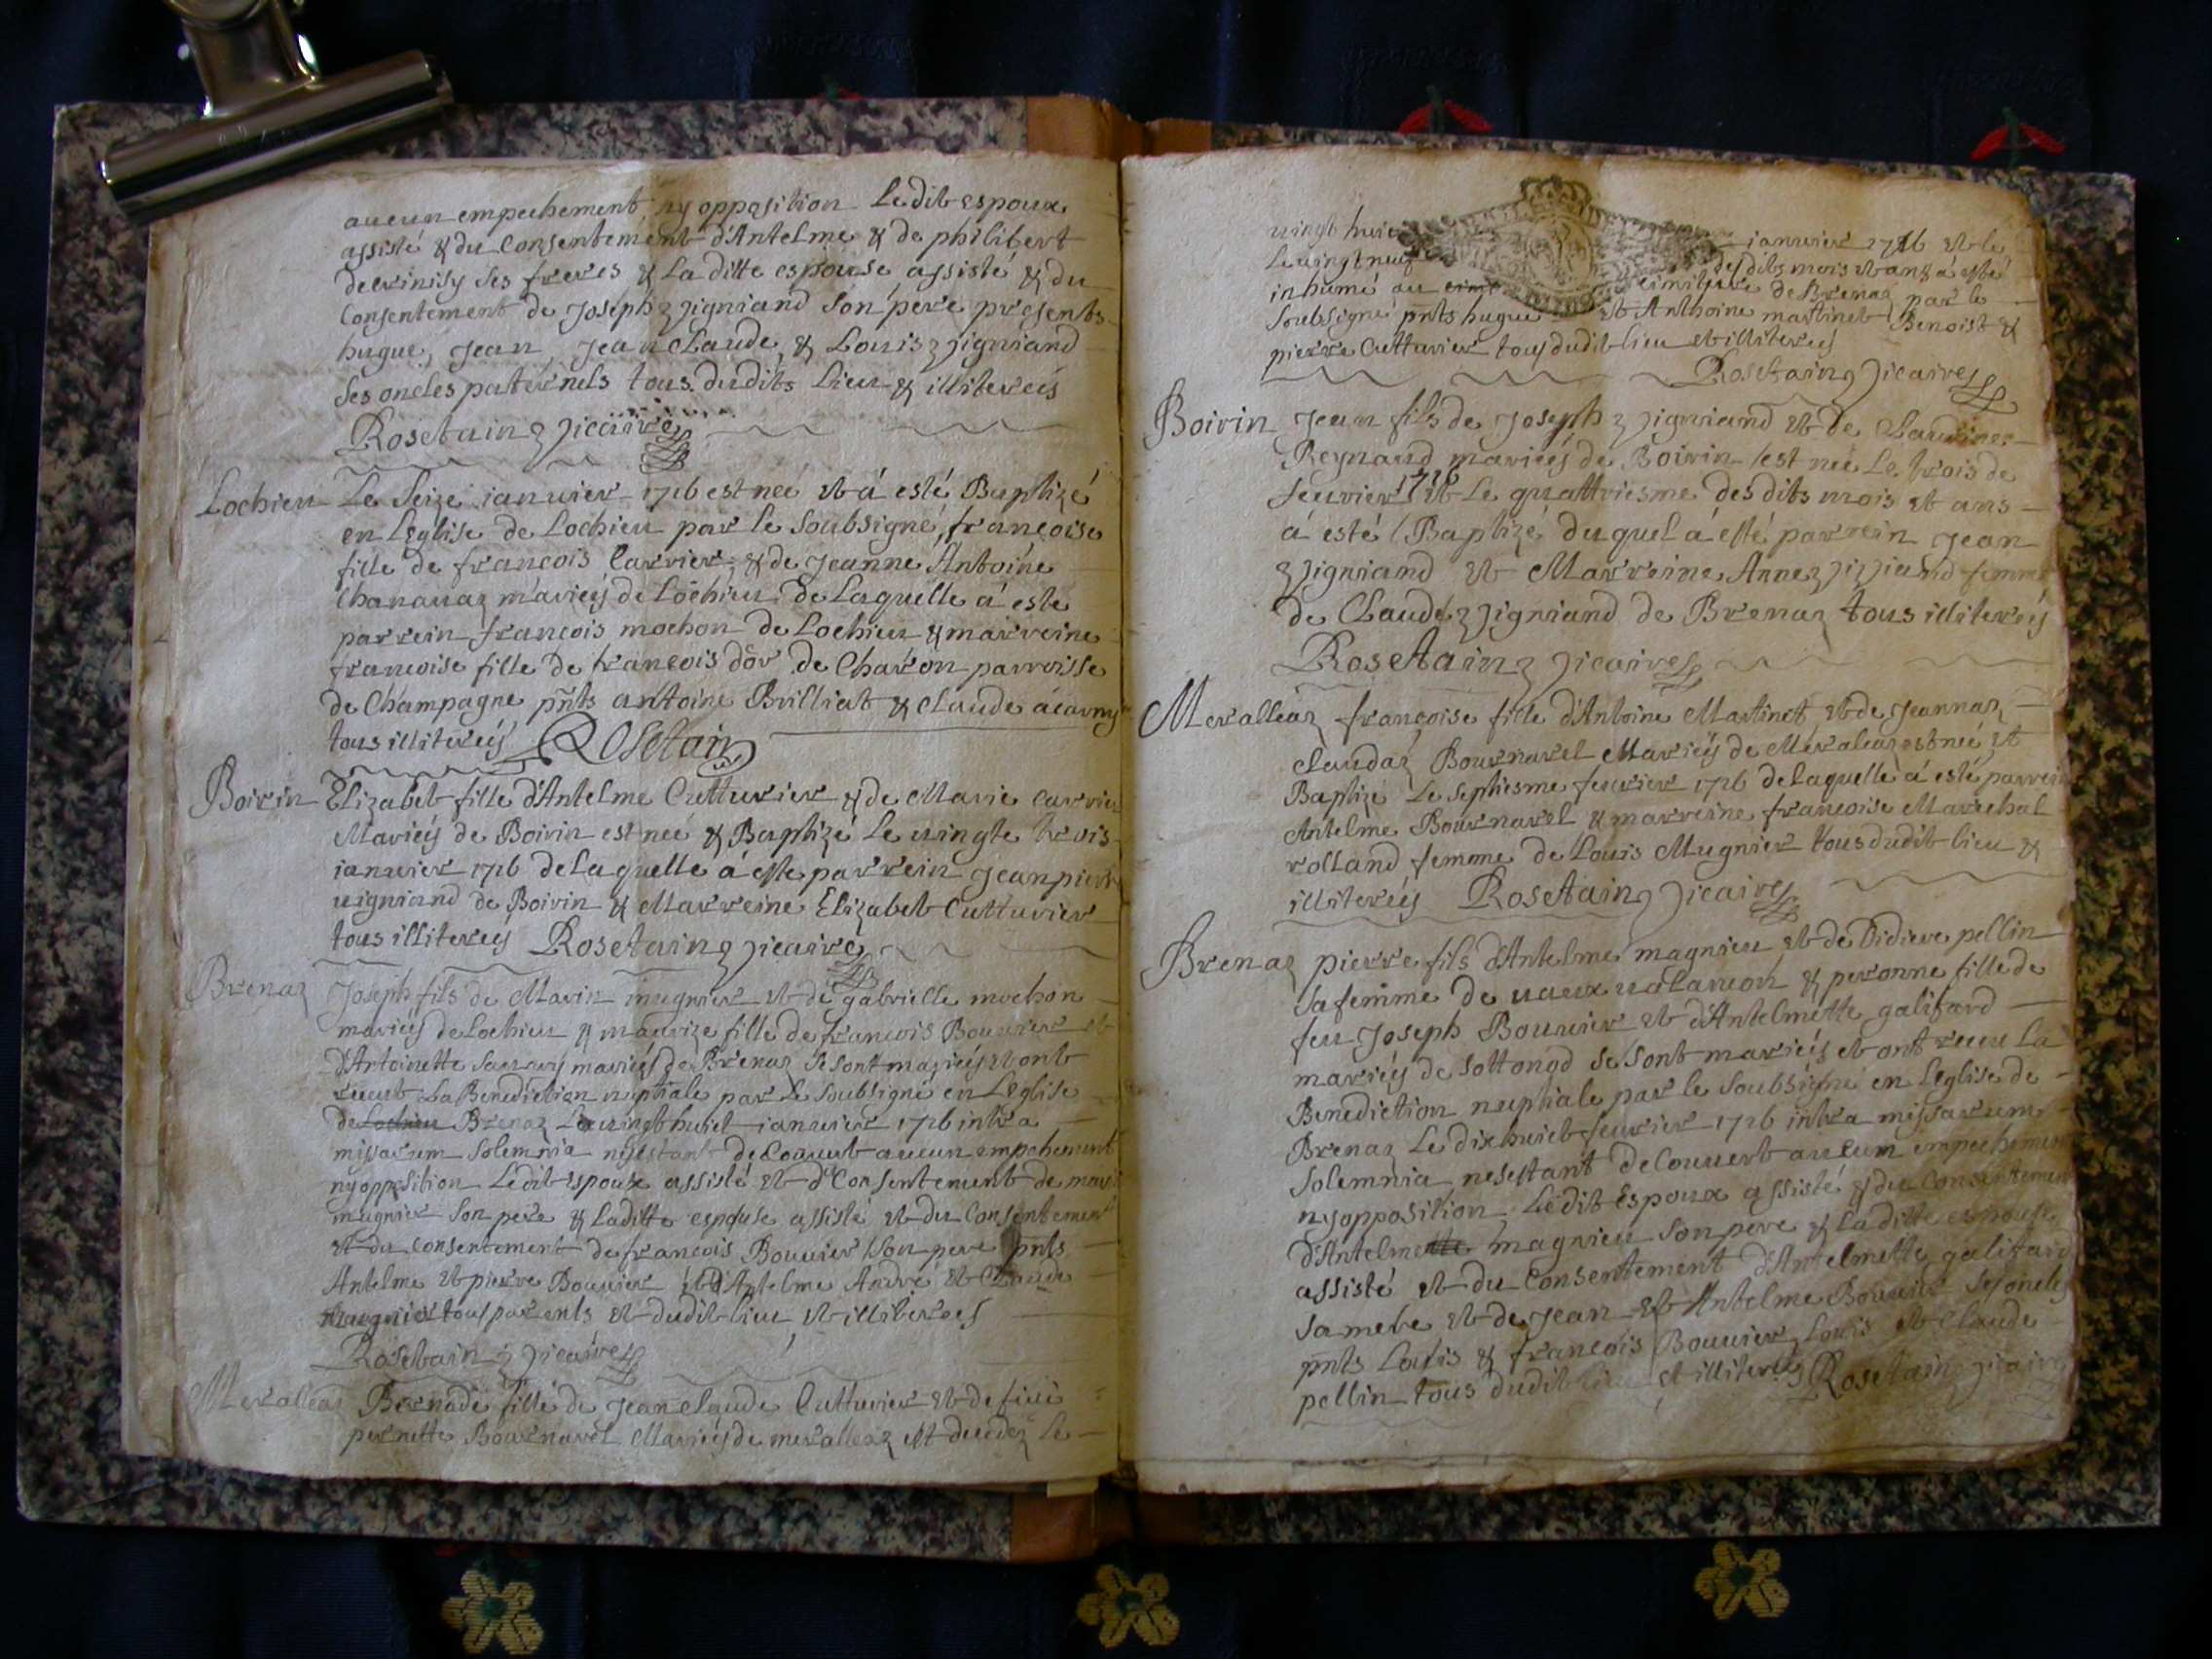 aucun empechement ny opposition Ledit espoux
assisté & du Consentement d'Antelme & de philibert
ses freres & La ditte espouse assisté & du
Consentement de Joseph Vigniand son pere presents
hugue, Jean, Jean Claude, & Louis Vigniand
ses oncles paternels tous dudits lieu & illitereés
Rosetain Vicaire
Lochieu Le seize ianuier 1726 est neé et á esté Baptizé
en Leglise de Lochieu par le soubsigné, françoise
fille de françois Carrier, & de Jeanne Antoine
Chanauaz marieés de Lochieu De Laquelle á esté
parrein francois mochon de Lochieu & marreine
francoise fille de francois dór de Charon parroisse
de Champagne pnts antoine Brilliat & Claude
tous illitereés Rosetain
Boirin Elizabet fille d'Antelme Cutturier & de Marie Carrier
Marieés de Boirin est neé & Baptizé Le uingte trois
ianuier 1726 de laquelle á este parrein Jean pierre
uigniand de Boirin & Marreine Elizabet Cutturier
tous illitereés Rosetain Vicaire
Brenaz Joseph fils de Marin mugnier et de gabrielle mochon
marieés de Lochieu & maurize fille de francois Bouuier et
d'Antoinette marieés de Brenaz se sont marieés et ont
receut La Benediction nuptiale par Le soubsigné en Leglise
de Lochieu Brenaz Le uingt huict ianuier 1726 intra
missarum solemnia n'estant decouuert aucun empechement
ny opposition Ledit espoux assisté et du Consentement de
mugnier son pere & La ditte espouse assisté et du Consentement
et du consentement de francois Bouuier son pere pnts
Antelme et pierre Bouuier et d'Antelme André et Claude
mugnier tous parents et dudit lieu et illitereés
Rosetain Vicaire
Meralleaz Bernade fille de Jean claude Cutturier et de
pernette Bournarel Marieés de meralleaz est decedeé le
uingt huic ianuier 1726 et le
Le uingt neuf desdits mois et an & á esté
inhumé au cimitiere de Brenaz par le
soubsigné pnts hugue et Anthoine martinet Benoist &
pierre Cutturier tous dudit lieu et illitereés
Rosetain Vicaire
Boirin Jean fils de Joseph Vigniand et de Claudine
Reynaud marieés de Boirin est neé Le trois de
feurier 1726 et Le quattriesme desdits mois et ans
á esté Baptizé duquel á esté parrein Jean
Vigniand et Marreine Anne femme
de Claude Vigniand de Brenaz tous illitereés
Rosetain Vicaire
Meralleaz françoise fille d'Antoine Martinet et de Jeannaz
claudaz Bournarel Marieés de Meraleaz est neé et
Baptizé Le septiesme feurier 1726 de laquelle á esté parrein
Antelme Bournarel & marreine francoise Marechal
rolland femme de Louis Mugnier tous dudit lieu &
illitereés Rosetain Vicaire
Brenaz pierre fils d'Antelme magnieu et de Didiere pellin
sa femme de & peronne fille de
feu Joseph Bouuier et d'Antelmette galifard
marieés de sottongd se sont marieés et ont receu La
Benediction nuptiale par le soubsigné en Leglise de
Brenaz Le dix huict feurier 1726 intra missarum
solemnia ne s'estant decouuert aucum empechement
ny opposition Ledit Espoux assisté & du Consentement
d'Antelmette magnieu son pere & La ditte espouse
assisté et du Consentement d'Antelmette galifard
sa mere et de Jean et Antelme Bouuier ses oncles
pnts Louis & francois Bouuier, Louis et Claude
pellin tous dudit lieu et illitereés Rosetain Vicaire